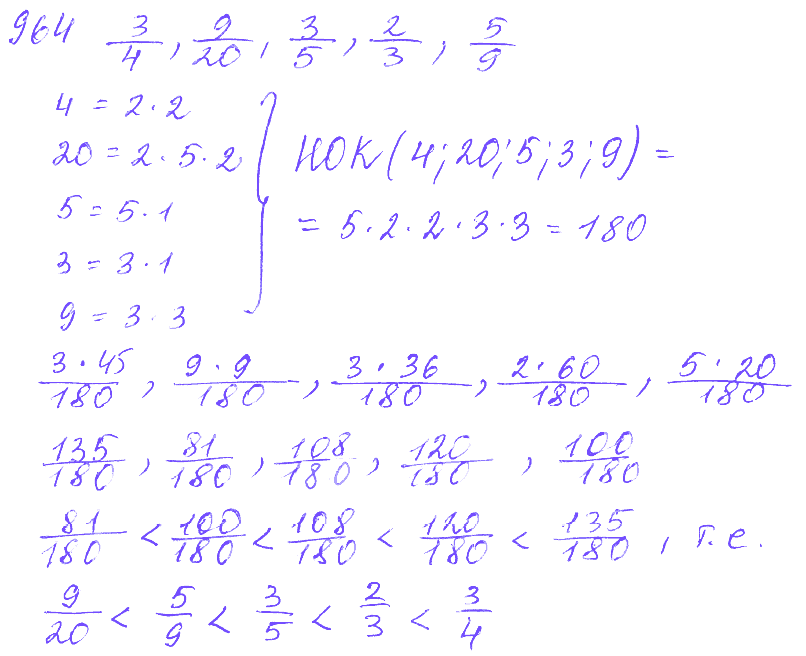 964 3/4, 9/20, 3/5, 2/3, 5/9
4 = 2·2
20 = 2·5·2
5 = 5·1
3 = 3·1
9 = 3·3
НОК(4;20;5;3;9) =
= 5·2·2·3·3 = 180
3·45/180, 9·9/180, 3·36/180, 2·60/180, 5·20/180
135/180, 81/180, 108/180, 120/180, 100/180
81/180 < 100/180 < 108/180 < 120/180 < 135/180, т.е.
9/20 < 5/9 < 3/5 < 2/3 < 3/4